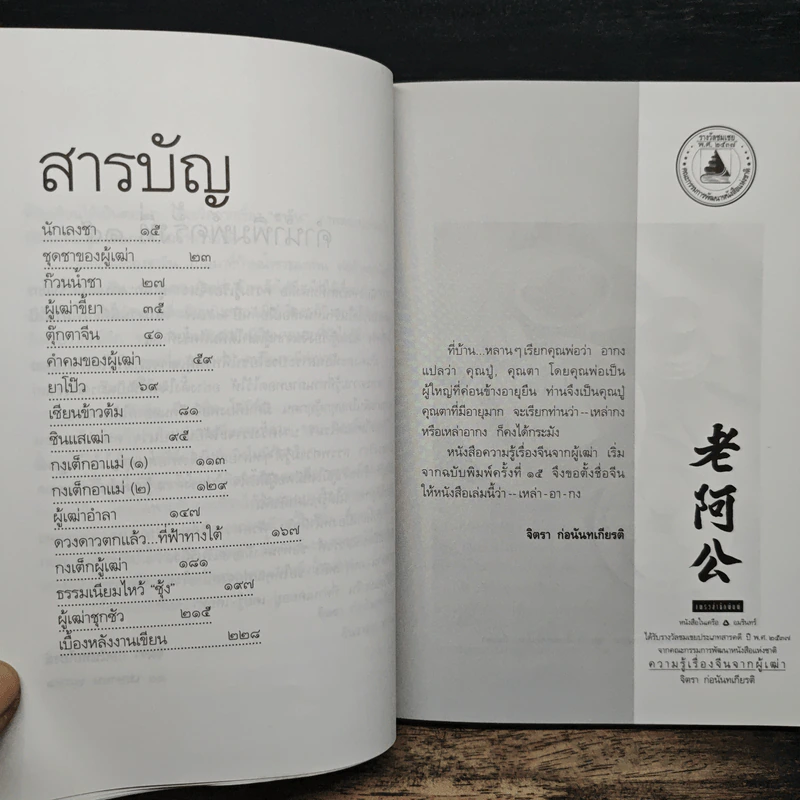 สารบัญ
นักเลงชา ๑๕
ชุดชาของผู้เฒ่า ๒๓
ก๊วนน้ำชา ๒๗
ผู้เฒ่าขี้ยา ๓๕
ตุ๊กตาจีน ๔๑
คำคมของผู้เฒ่า ๕๙
ยาโป๊ว ๖๙
เซียนข้าวต้ม ๘๑
ซินแสเฒ่า ๙๕
กงเต็กอาแม่ (๑) ๑๑๓
กงเต็กอาแม่ (๒) ๑๒๙
ผู้เฒ่าอำลา ๑๔๗
ดวงดาวตกแล้ว...ที่ฟ้าทางใต้ ๑๖๗
กงเต็กผู้เฒ่า ๑๘๑
ธรรมเนียมไหว้ “ซุ้ง” ๑๙๗
ผู้เฒ่าซุกซัว ๒๑๕
เบื้องหลังงานเขียน ๒๒๘
รางวัลชมเชย
พ.ศ. ๒๕๓๗
คณะกรรมการพัฒนาหนังสือแห่งชาติ
ที่บ้าน...หลานๆ เรียกคุณพ่อว่า อากง
แปลว่า คุณปู่, คุณตา โดยคุณพ่อเป็น
ผู้ใหญ่ที่ค่อนข้างอายุยืน ท่านจึงเป็นคุณปู่
คุณตาที่มีอายุมาก จะเรียกท่านว่า--เหล่ากง
หรือเหล่าอากง ก็คงได้กระมัง
หนังสือความรู้เรื่องจีนจากผู้เฒ่า เริ่ม
จากฉบับพิมพ์ครั้งที่ ๑๕ จึงขอตั้งชื่อจีน
ให้หนังสือเล่มนี้ว่า--เหล่า-อา-กง
จิตรา ก่อนันทเกียรติ
老阿公
แพรวสำนักพิมพ์
หนังสือในเครือ อมรินทร์
ได้รับรางวัลชมเชยประเภทสารคดี ปี พ.ศ. ๒๕๓๗
จากคณะกรรมการพัฒนาหนังสือแห่งชาติ
ความรู้เรื่องจีนจากผู้เฒ่า
จิตรา ก่อนันทเกียรติ